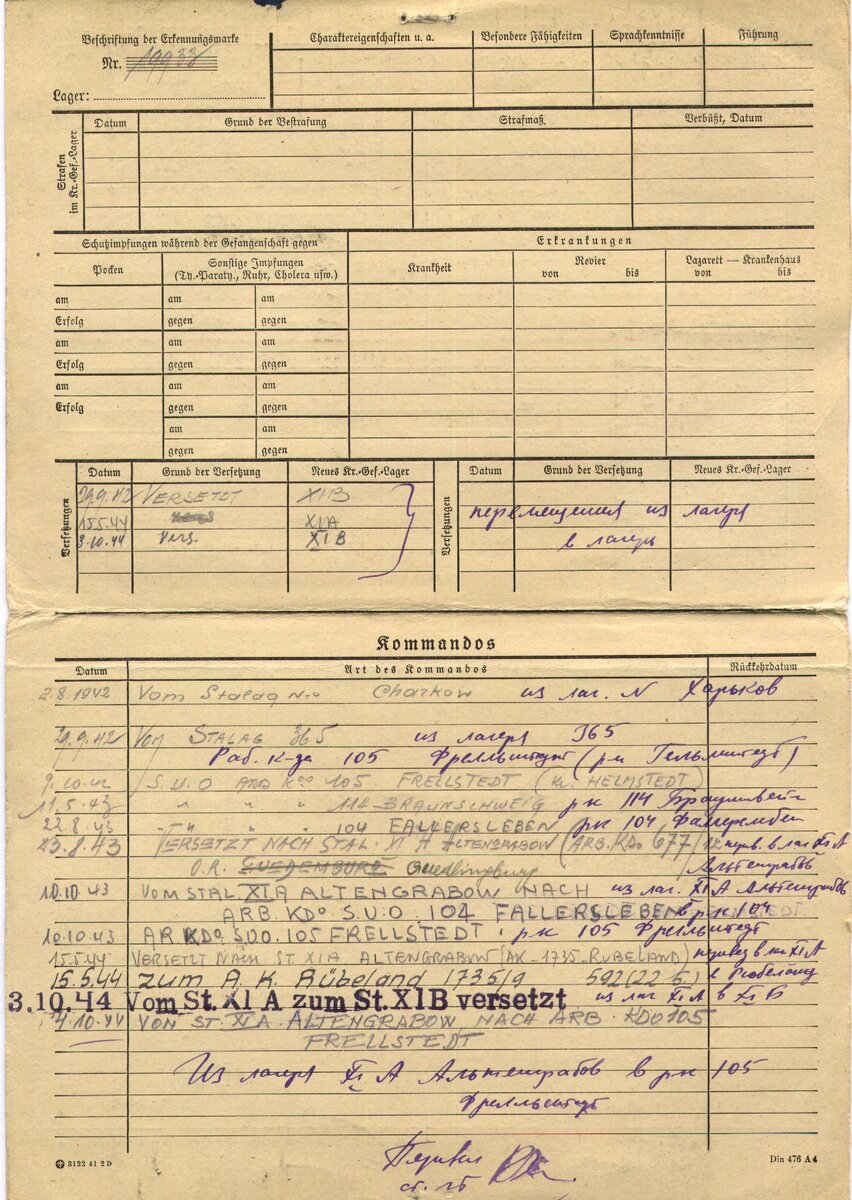 Beschriftung der Erkennungsmarke
Nr. 19933
Lager:
Charaktereigenschaften u. a.
Besondere Fähigkeiten
Sprachkenntnisse
Führung
Strafen im Kr.-Gef.-Lager
Datum
Grund der Bestrafung
Strafmaß
Verbüßt, Datum
Schutzimpfungen während der Gefangenschaft gegen
Erkrankungen
Pocken
Sonstige Impfungen
(Ty.-Paraty., Ruhr, Cholera usw.)
Krankheit
Revier
von bis
Lazarett — Krankenhaus
von bis
am am am
Erfolg gegen gegen
am am am
Erfolg gegen gegen
am am am
Erfolg gegen gegen
am am
gegen gegen
Versetzungen
Datum Grund der Versetzung Neues Kr.-Gef.-Lager
29.9.42 VERSETZT XI B
15.5.44 XI A
3.10.44 Vers. XI B
Versetzungen
Datum Grund der Versetzung Neues Kr.-Gef.-Lager
перемещения из лагеря
в лагерь
Kommandos
Datum Art des Kommandos Rückkehrdatum
2.8.1942 Vom Stalag No Charkow из лаг. N Харьков
29.9.42 Vom STALAG 365 из лагеря 365
Раб. к-да 105 Фрелльштедт (рн Гельмштедт)
9.10.42 S.U.O ARB Kdo 105 FRELLSTEDT (Kr. HELMSTEDT)
11.5.43 " " " 114 BRAUNSCHWEIG рк 114 Брауншвейг
22.8.43 " " " 104 FALLERSLEBEN рк 104
23.8.43 VERSETZT NACH STAL. XI A ALTENGRABOW (ARB. KDO 677/12 перев. в лаг XI A
O.R. Quedlinburg Альтенграбов
10.10.43 VOM STAL XI A ALTENGRABOW NACH из лаг. XI A Альтенграбов
ARB. KDO S.U.O. 104 FALLERSLEBEN в рк 104
10.10.43 AR KDO. SUO. 105 FRELLSTEDT. рк 105 Фрелльштедт
15.5.44 VERSETZT NACH ST. XI A ALTENGRABOW (AK-1735-RUBELAND) перевед в лаг XI A
15.5.44 zum A. K. Rübeland 1735/9 592 (22 б.) в Рюбеланд
3.10.44 Vom St. XI A zum St. XI B versetzt из лаг. XI A в XI B
4.10.44 VON ST. XI A. ALTENGRABOW NACH ARB. KDO 105
FRELLSTEDT
Из лагеря XI A Альтенграбов в рк 105
Фрелльштедт
Перевел
ст. л-т
3122 41 2 D
Din 476 A 4